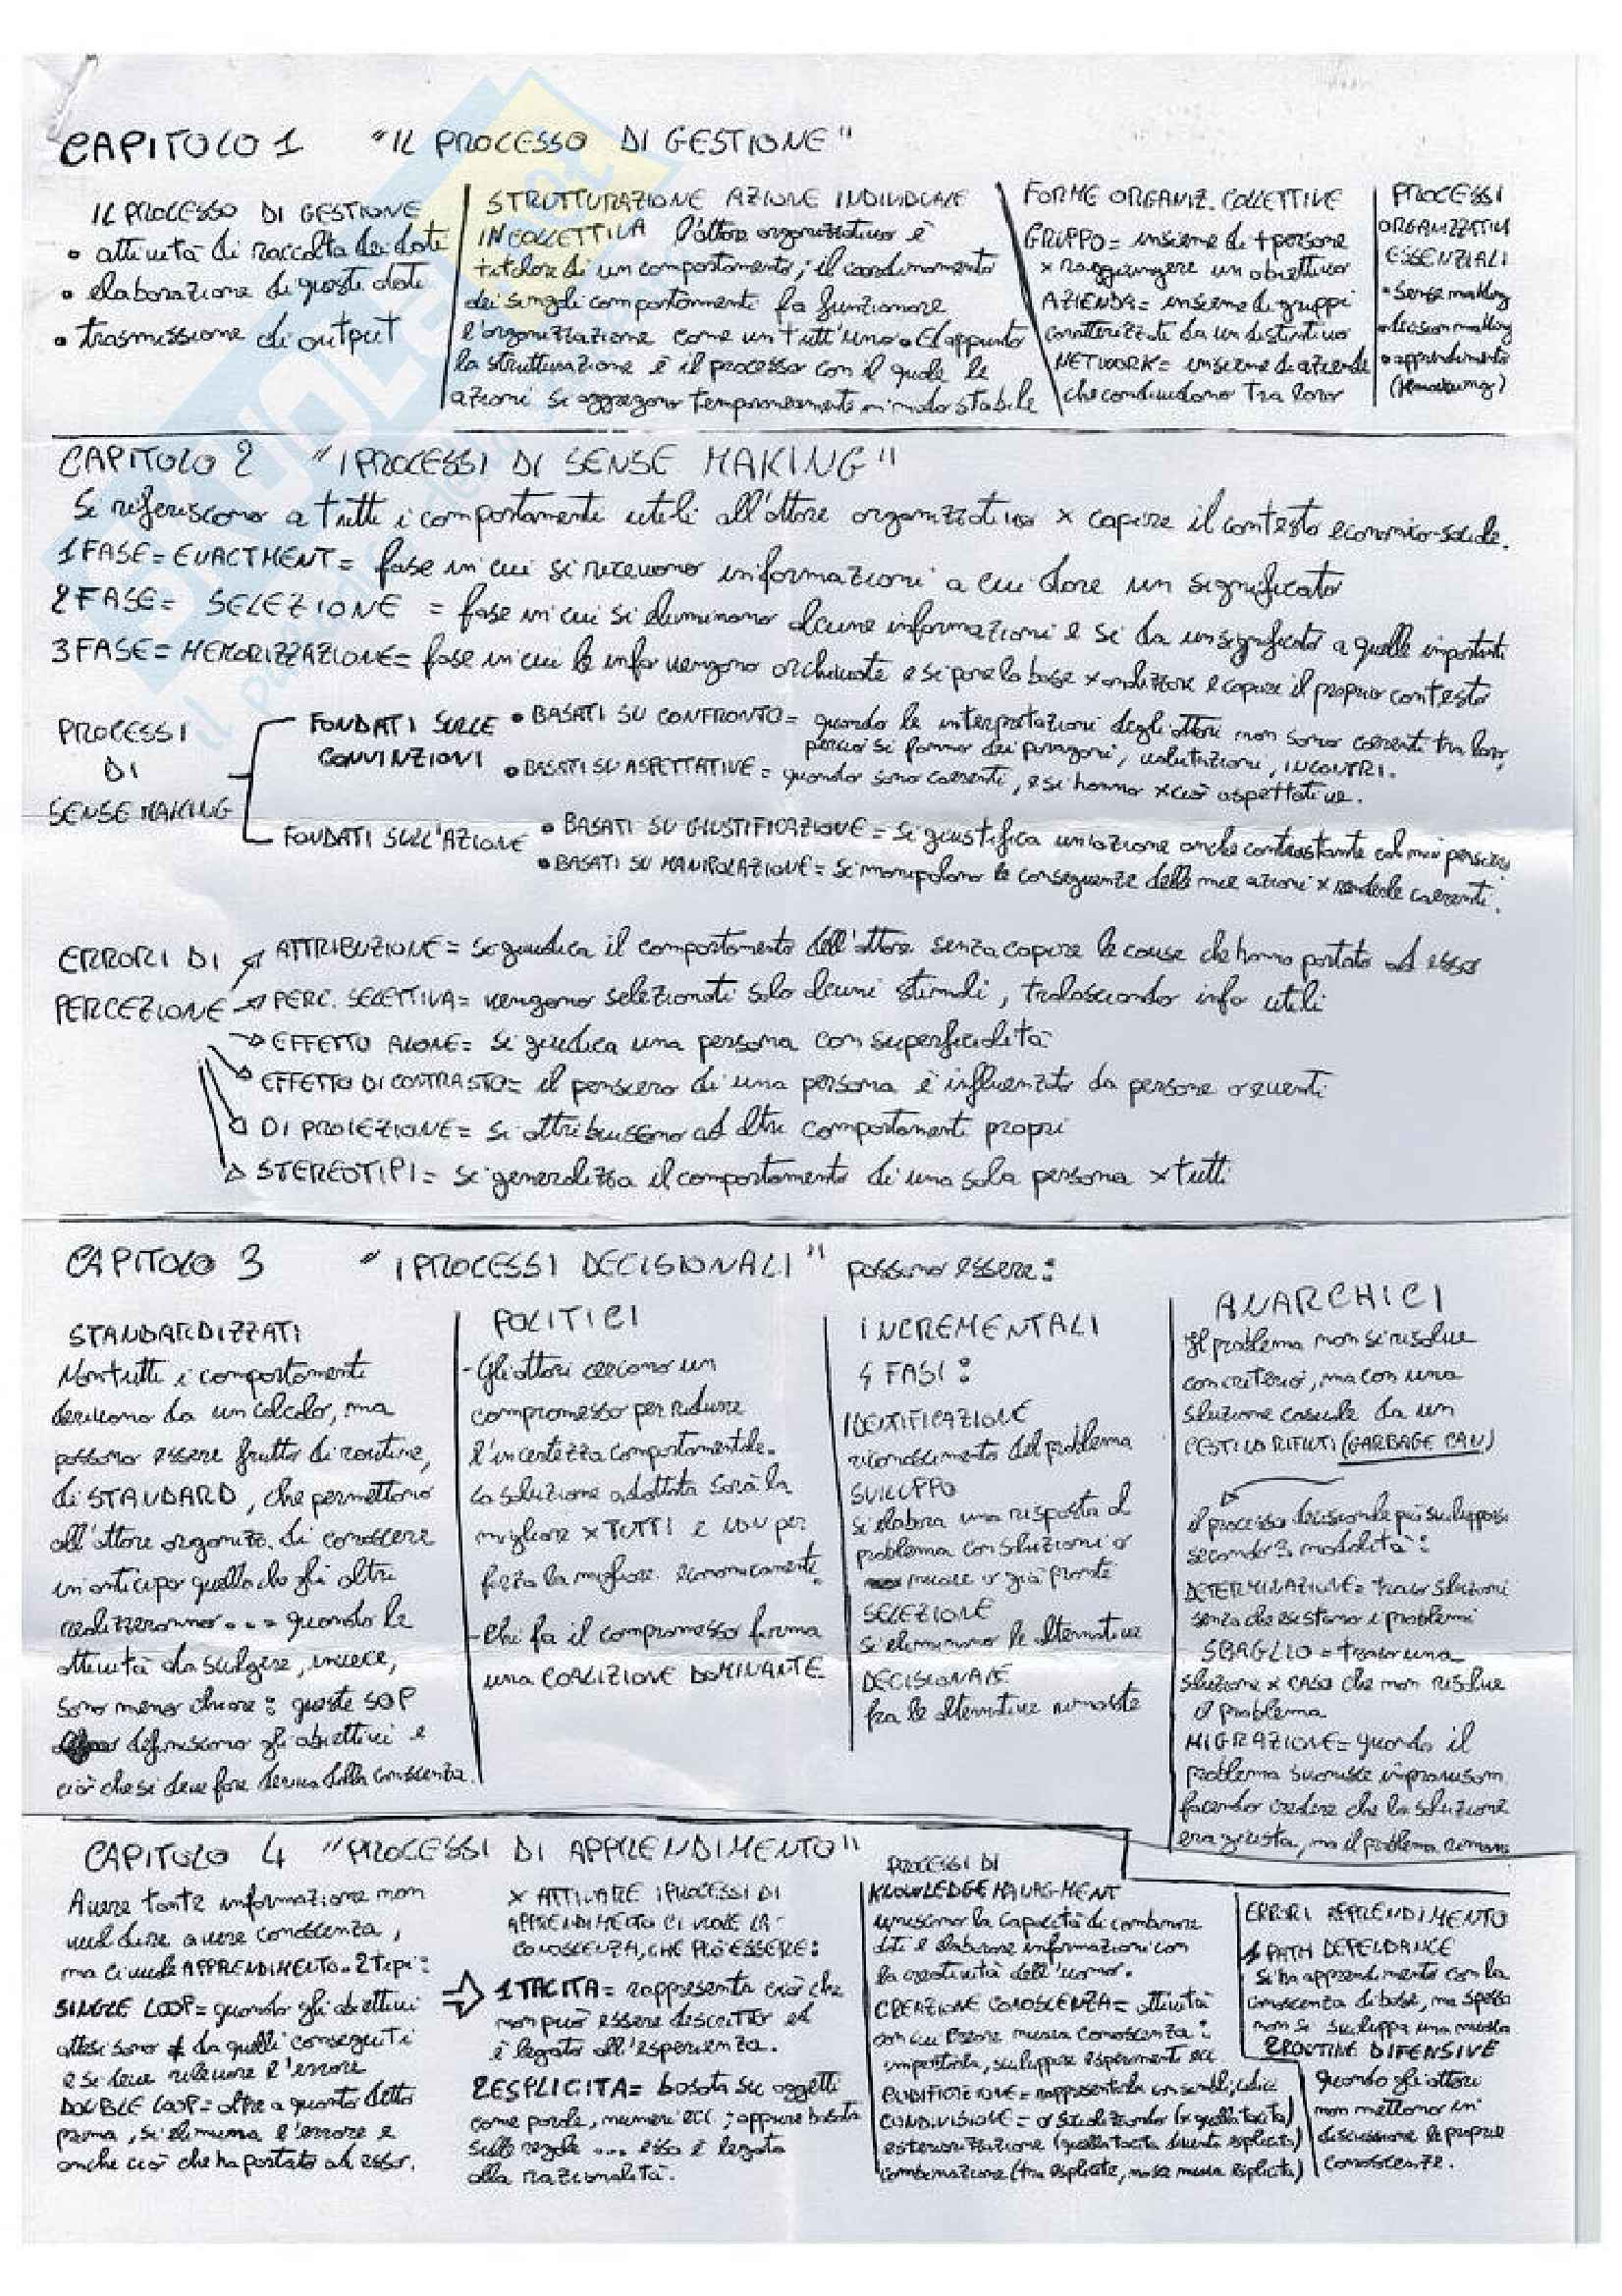 CAPITOLO 1 "IL PROCESSO DI GESTIONE"
IL PROCESSO DI GESTIONE
• attività di raccolta dei dati
• elaborazione di questi dati
• trasmissione di output
STRUTTURAZIONE AZIONE INDIVIDUALE
IN COLLETTIVA l'attore organizzativo è
titolare di un comportamento; il coordinamento
dei singoli comportamenti fa funzionare
l'organizzazione come un tutt'uno. Ed appunto
la strutturazione è il processo con il quale le
azioni si aggregano temporaneamente in modo stabile
FORME ORGANIZ. COLLETTIVE
GRUPPO = insieme di + persone
x raggiungere un obiettivo
AZIENDA = insieme di gruppi
caratterizzate da un distintivo
NETWORK = insieme di aziende
che condividono tra loro
PROCESSI
ORGANIZZATIVI
ESSENZIALI
• sense making
• decision making
• apprendimento
CAPITOLO 2 "I PROCESSI DI SENSE MAKING"
Si riferiscono a tutti i comportamenti utili all'attore organizzativo x capire il contesto economico-sociale.
1 FASE = ENACTMENT = fase in cui si ricevono informazioni a cui dare un significato
2 FASE = SELEZIONE = fase in cui si eliminano alcune informazioni e si da un significato a quelle importanti
3 FASE = MEMORIZZAZIONE = fase in cui le info vengono archiviate e si pone la base x analizzare e capire il proprio contesto
PROCESSI
DI
SENSE MAKING
FONDATI SULLE
CONVINZIONI
• BASATI SU CONFRONTO = quando le interpretazioni degli attori non sono coerenti tra loro,
perciò si fanno dei paragoni, valutazioni, INCONTRI.
• BASATI SU ASPETTATIVE = quando sono coerenti, e si hanno xciò aspettative.
FONDATI SULL'AZIONE
• BASATI SU GIUSTIFICAZIONE = si giustifica un'azione anche contrastante col mio pensiero
• BASATI SU MANIPOLAZIONE = si manipolano le conseguenze delle mie azioni x renderle coerenti.
ERRORI DI
PERCEZIONE
ATTRIBUZIONE = si giudica il comportamento dell'attore senza capire le cause che hanno portato ad esso
PERC. SELETTIVA = vengono selezionati solo alcuni stimoli, tralasciando info utili
EFFETTO ALONE = si giudica una persona con superficialità
EFFETTO DI CONTRASTO = il pensiero di una persona è influenzato da persone
DI PROIEZIONE = si attribuiscono ad altri comportamenti propri
STEREOTIPI = si generalizza il comportamento di una sola persona x tutti
CAPITOLO 3 "I PROCESSI DECISIONALI" possono essere:
STANDARDIZZATI
Non tutti i comportamenti
derivano da un calcolo, ma
possono essere frutto di routine,
di STANDARD, che permettono
all'attore organizz. di conoscere
in anticipo quello che gli altri
realizzeranno... quando le
attività da svolgere, invece,
sono meno chiare: queste SOP
definiscono gli obiettivi e
ciò che si deve fare deriva dalla conoscenza.
POLITICI
- Gli attori cercano un
compromesso per ridurre
l'incertezza comportamentale.
La soluzione adottata sarà la
migliore x TUTTI e NON per
forza la migliore economicamente.
- Chi fa il compromesso forma
una COALIZIONE DOMINANTE
INCREMENTALI
4 FASI:
IDENTIFICAZIONE
riconoscimento del problema
SVILUPPO
si elabora una risposta al
problema con soluzioni o
nuove o già pronte
SELEZIONE
si eliminano le alternative
DECISIONALE
fra le alternative rimaste
ANARCHICI
Il problema non si risolve
con criterio, ma con una
soluzione casuale da un
CESTINO RIFIUTI (GARBAGE CAN)
il processo decisionale può svilupparsi
secondo 3 modalità:
DETERMINAZIONE = trovo soluzioni
senza che esistano i problemi
SBAGLIO = trovo una
soluzione x CASO che non risolve
il problema
MIGRAZIONE = quando il
problema svanisce improvvisam.
facendo credere che la soluzione
era giusta, ma il problema rimane
CAPITOLO 4 "PROCESSI DI APPRENDIMENTO"
Avere tante informazione non
vuol dire avere conoscenza,
ma ci vuole APPRENDIMENTO. 2 tipi:
SINGLE LOOP = quando gli obiettivi
attesi sono ≠ da quelli conseguiti
e si deve rilevare l'errore
DOUBLE LOOP = oltre a quanto detto
prima, si elimina l'errore e
anche ciò che ha portato ad esso.
X ATTIVARE I PROCESSI DI
APPRENDIMENTO CI VUOLE LA
CONOSCENZA, CHE PUÒ ESSERE:
1 TACITA = rappresenta ciò che
non può essere descritto ed
è legato all'esperienza.
2 ESPLICITA = basata su oggetti
come parole, numeri ecc; oppure basata
sulle regole ... esso è legata
alla razionalità.
PROCESSI DI
KNOWLEDGE MANAG-MENT
uniscono la capacità di combinare
dati e elaborare informazioni con
la creatività dell'uomo.
CREAZIONE CONOSCENZA = attività
con cui creare nuova conoscenza:
importarla, sviluppare esperimenti ecc
CODIFICAZIONE = rappresentarla con simboli, codici
CONDIVISIONE = o socializzando (x quella tacita)
esteriorizzazione (quella tacita diventa esplicita)
combinazione (tra esplicite, nasce nuova esplicita)
ERRORI APPRENDIMENTO
1 PATH DEPENDANCE
si ha apprendimento con la
conoscenza di base, ma spesso
non si sviluppa una nuova
2 ROUTINE DIFENSIVE
quando gli attori
non mettono in
discussione le proprie
conoscenze.